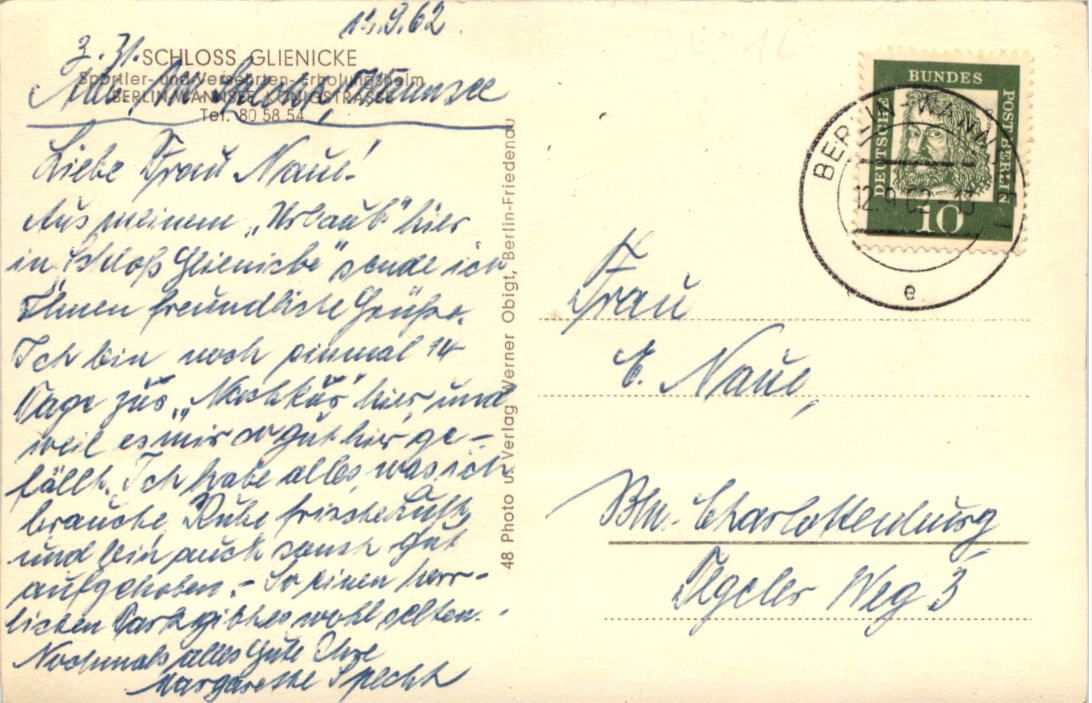 12.9.62
z. Zt.
SCHLOSS GLIENICKE
Sportler- und Versehrten-Erholungsheim
BERLIN-WANNSEE, KÖNIGSTRASSE
Tel. 80 58 54
Wannsee
Liebe Frau Naue!
Aus meinem „Urlaub" hier
in „Schloß Glienicke" sende ich
Ihnen freundliche Grüße.
Ich bin noch einmal 14
Tage zur „Nachkur" hier, und
weil es mir so gut hier ge-
fällt. Ich habe alles, was ich
brauche, Ruhe frische Luft
und bin auch sonst gut
aufgehoben. - So einen herr-
lichen Park gibt es wohl selten. -
Nochmals alles Gute Ihre
Margarethe Specht
48 Photo u. Verlag Werner Obigt, Berlin-Friedenau
DEUTSCHE BUNDESPOST BERLIN
10
BERLIN-WANNSEE
12.9.62-13
e
Frau
E. Naue,
Bln.-Charlottenburg
Tegeler Weg 3